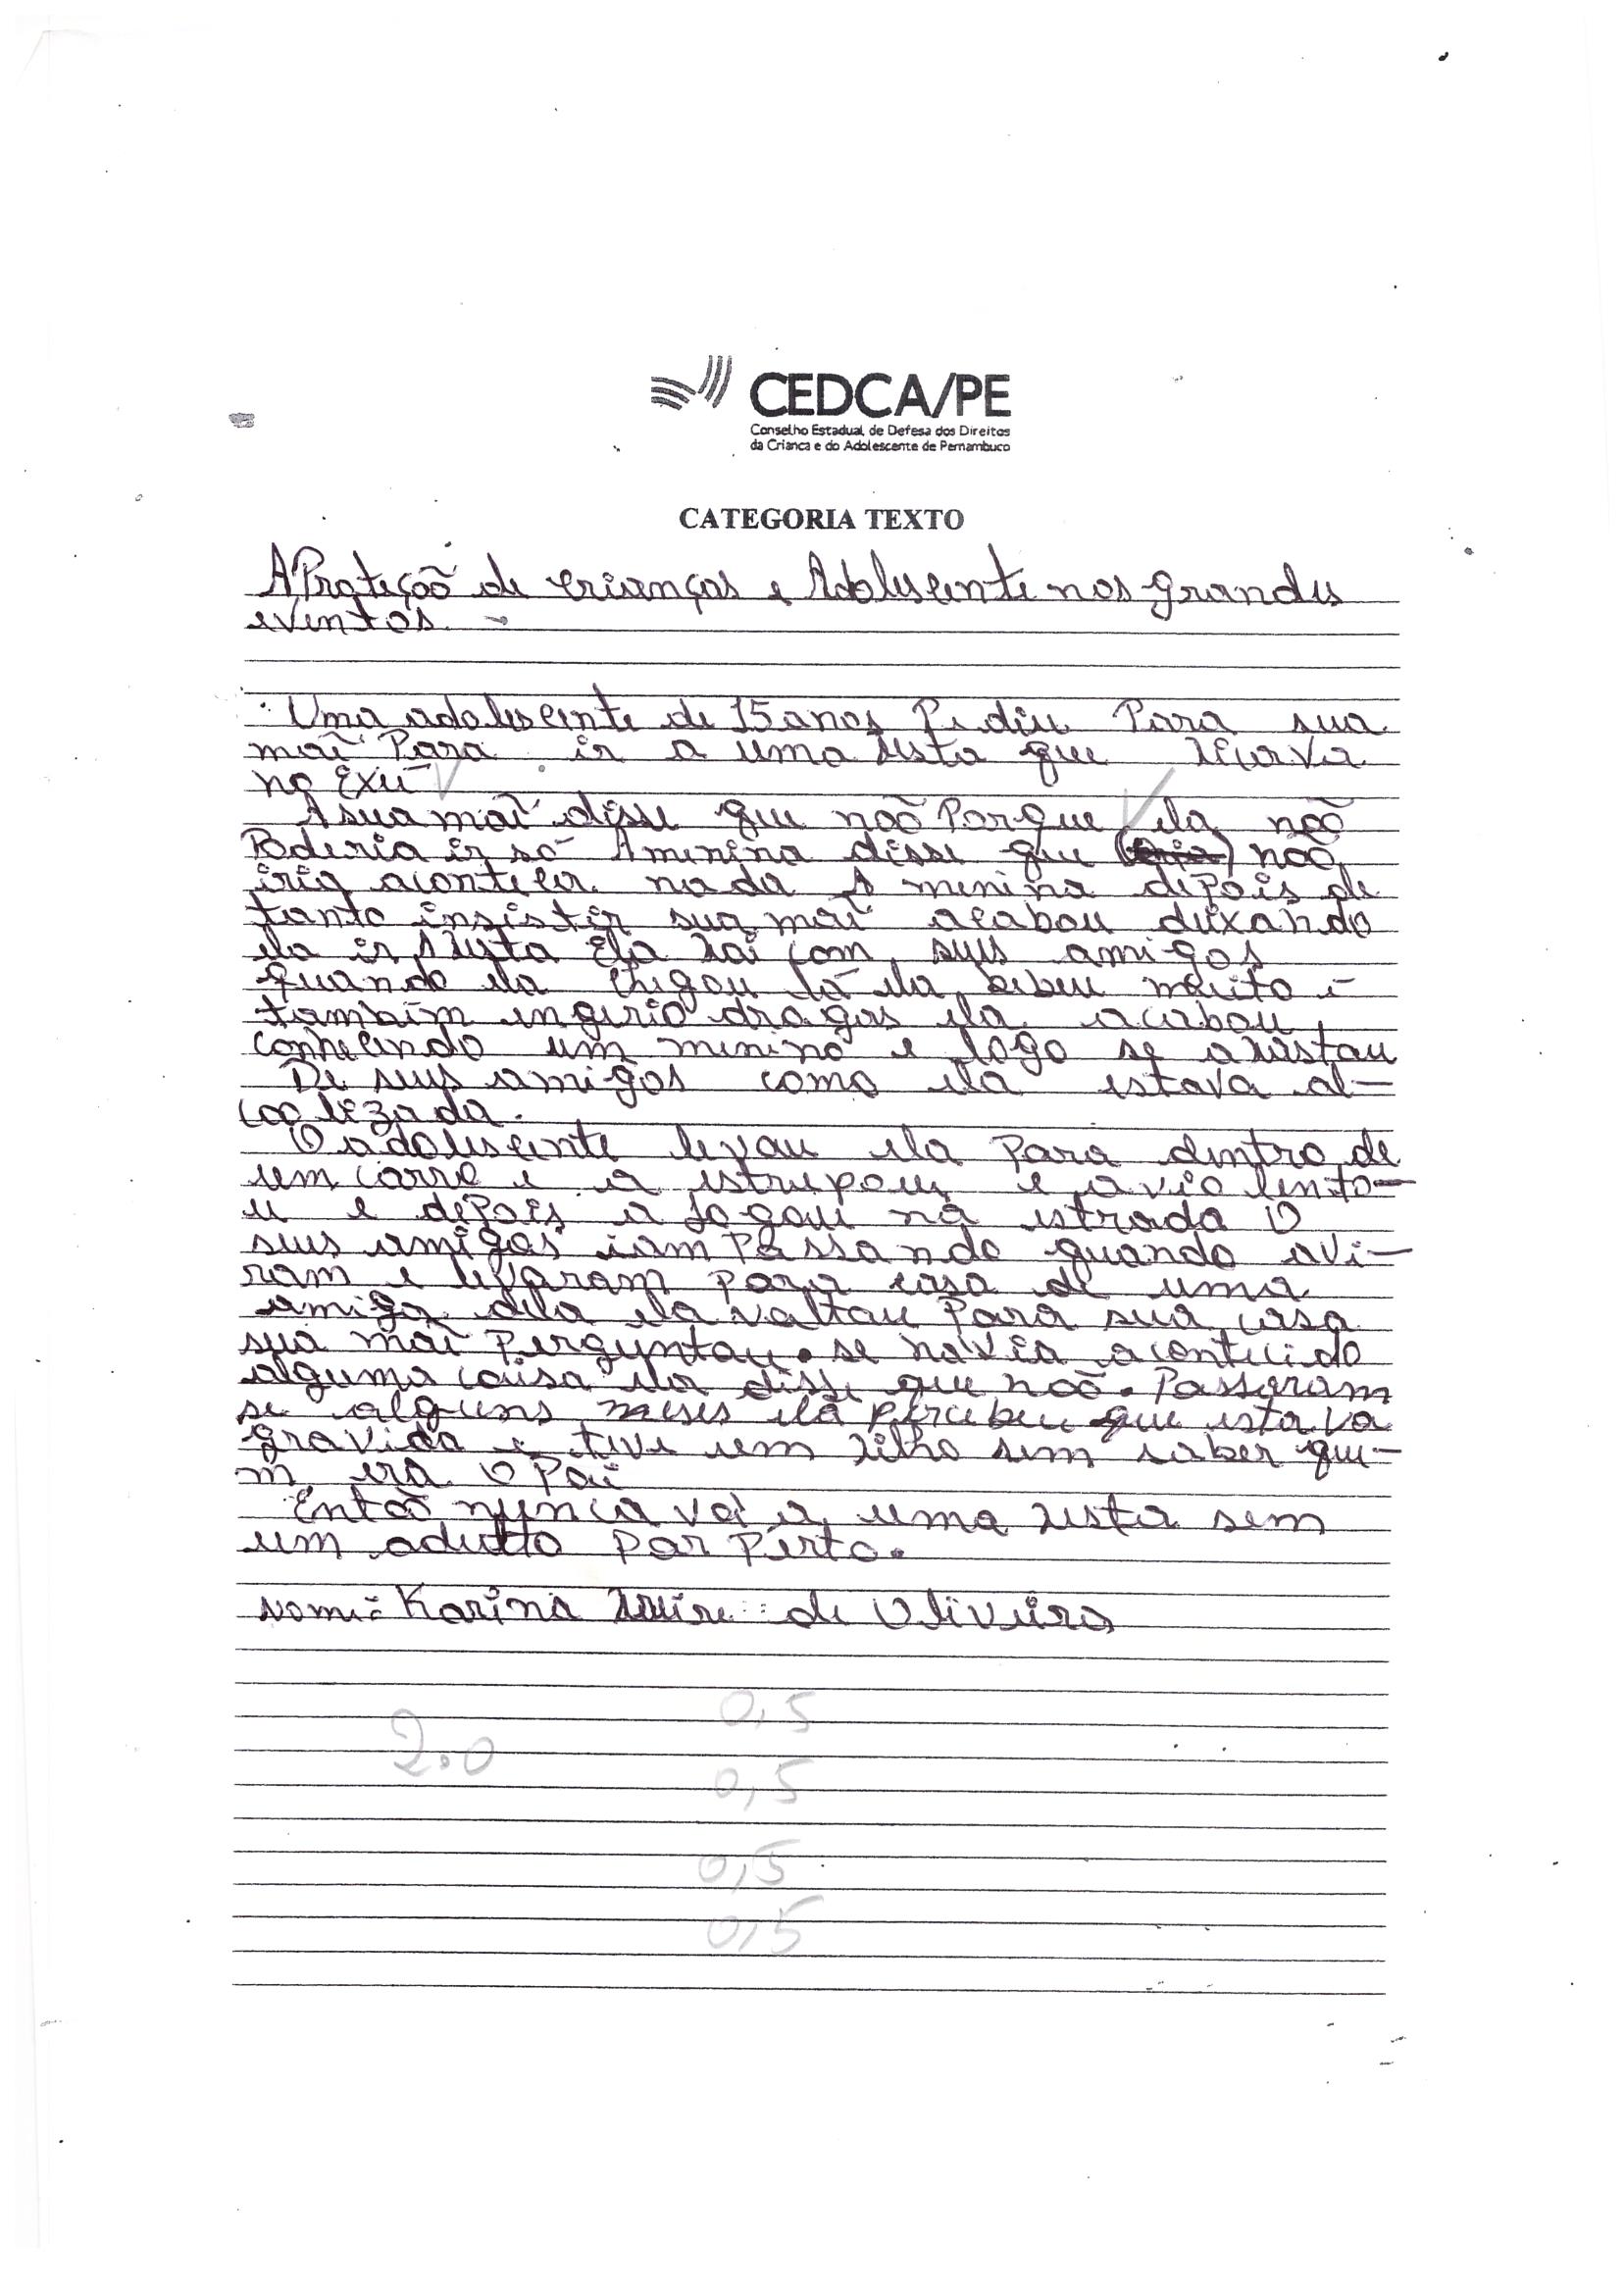 CEDCA/PE
Conselho Estadual de Defesa dos Direitos
da Criança e do Adolescente de Pernambuco
CATEGORIA TEXTO
A Proteçoõ de crianças e Adolescente nos grandes
eventos.
Uma adolescente de 15 anos Pediu Para sua
maẽ Para ir a uma festa que ficava
no Exu
A sua maẽ disse que noõ Porque ela noõ
Poderia ir só A menina disse que noõ
iria acontecer nada A menina depois de
tanto insistir sua maẽ acabou deixando
ela ir A festa Ela foi com seus amigos
quando ela chegou lá ela bebeu muito e
também ingerio drogas ela acabou
conhecendo um menino e logo se afastou
De seus amigos como ela estava al=
coolizada.
O adolescente levou ela Para dentro de
um carro e a estrupou e a violento-
u e depois a jogou na estrada O
seus amigos iam Passando quando avi-
ram e levaram para casa de uma
amiga dela ela voltou Para sua casa
sua maẽ Perguntou. se havia acontecido
alguma coisa ela disse que noõ. Passaram
se alguns meses ela percebeu que estava
gravida e teve um filho sem saber que-
m era o Pai
Entoõ nunca vá a uma festa sem
um adulto Por Perto.
Nome: Karina de Oliveira
0,5
2.0
0,5
0,5
0,5